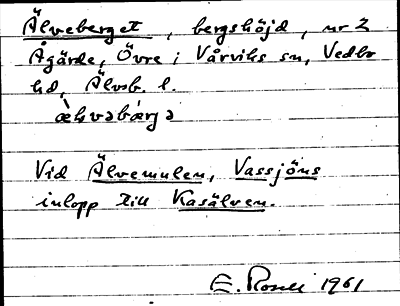 Älveberget, bergshöjd, nr 2
Ågärde, Övre i Vårviks sn, Vedbo
hd, Älvsb. l.
Vid Älvemulen, Vassjöns
inlopp till Kasälven.
E. 1961